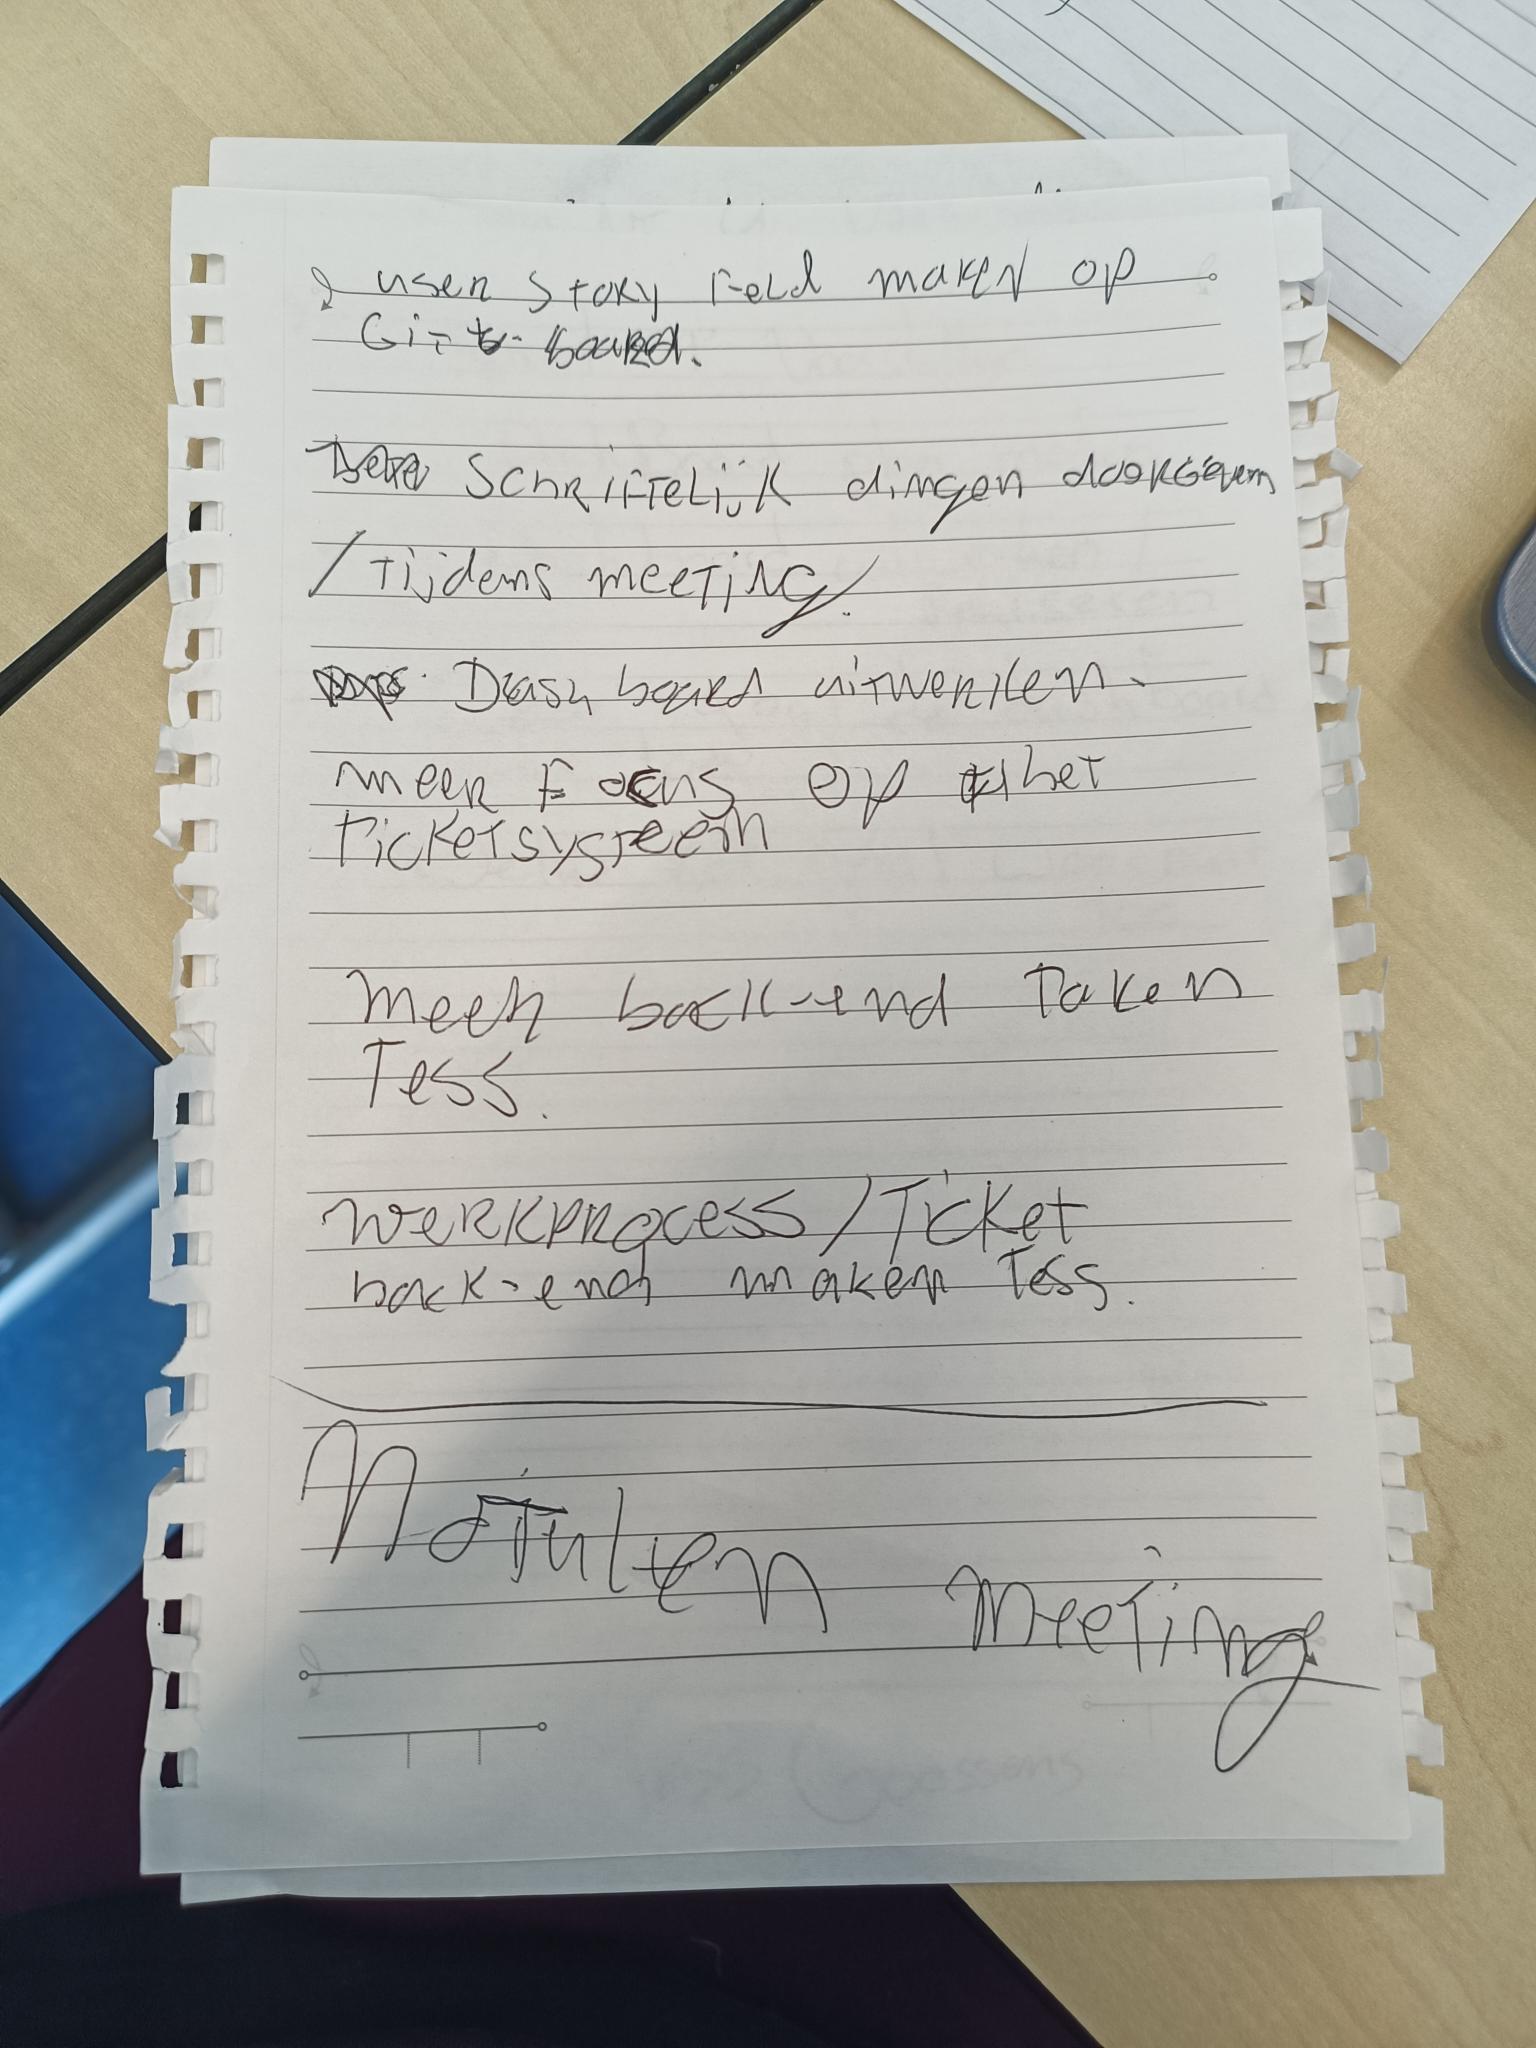 user story Field maken op
Git board.
Schriftelijk dingen doorgeven
/Tijdens meeting/.
Dashboard uitwerken.
meer Focus op het
Ticketsysteem
meer back-end Taken
Tess.
werkprocess/Ticket
back-end maken Tess.
Notulen meeting